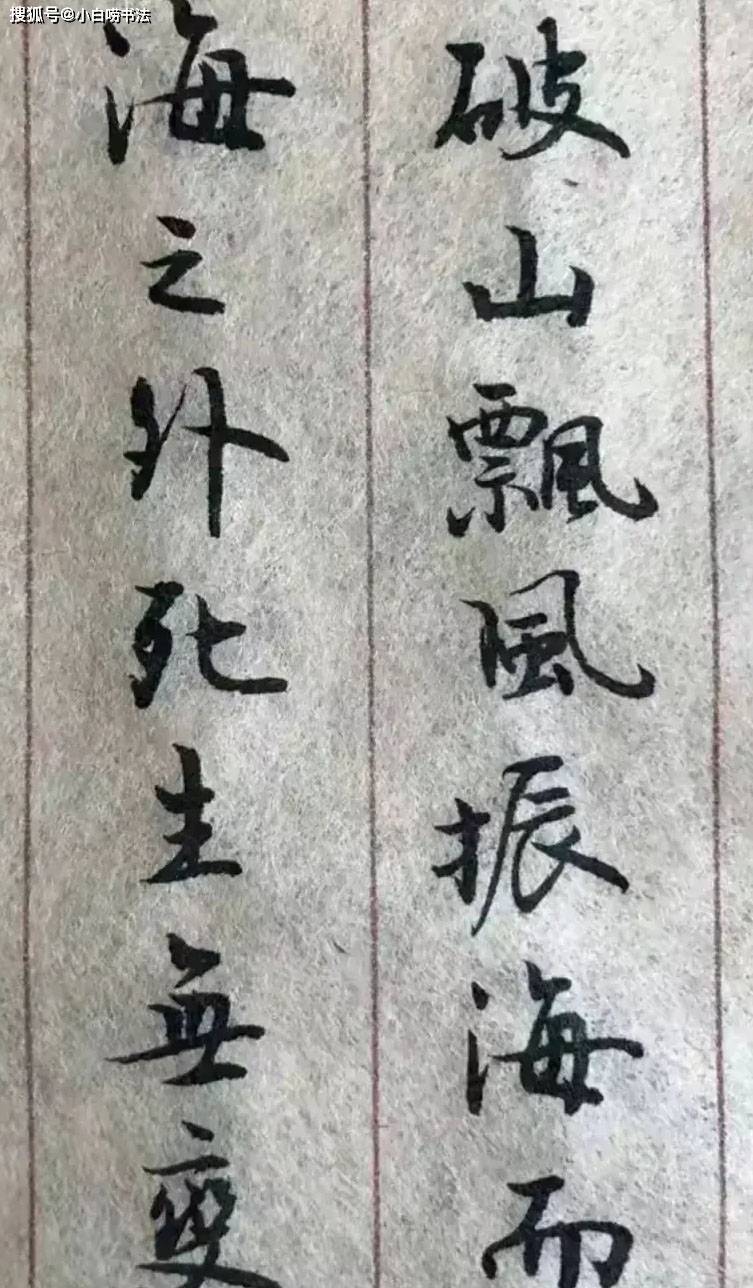 搜狐号@小白唠书法
破山飘風振海而
海之外死生無变